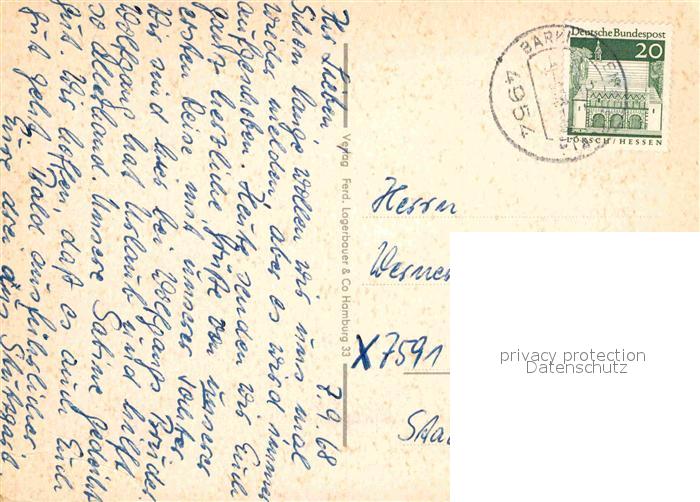 7.9.68
Ihr Lieben,
Schon lange wollen wir uns mal
wieder melden, aber es wird immer
aufgeschoben. Heute senden wir Euch
ganz herzliche Grüße von unserer
ersten Reise mit unserer Tochter.
Wir sind hier bei Wolfgangs Bruder.
Wolfgang hat Urlaub und hilft
so allerhand. Unsere Sabine gedeiht
gut. Wir hoffen, daß es auch Euch
gut geht. Bald ausführlicher
Eure drei aus Stuttgart
Verlag Ferd. Lagerbauer & Co Hamburg 33
Deutsche Bundespost
20
LORSCH/HESSEN
4954 BARK
Herrn
Werner
X 7591
privacy protection
Datenschutz